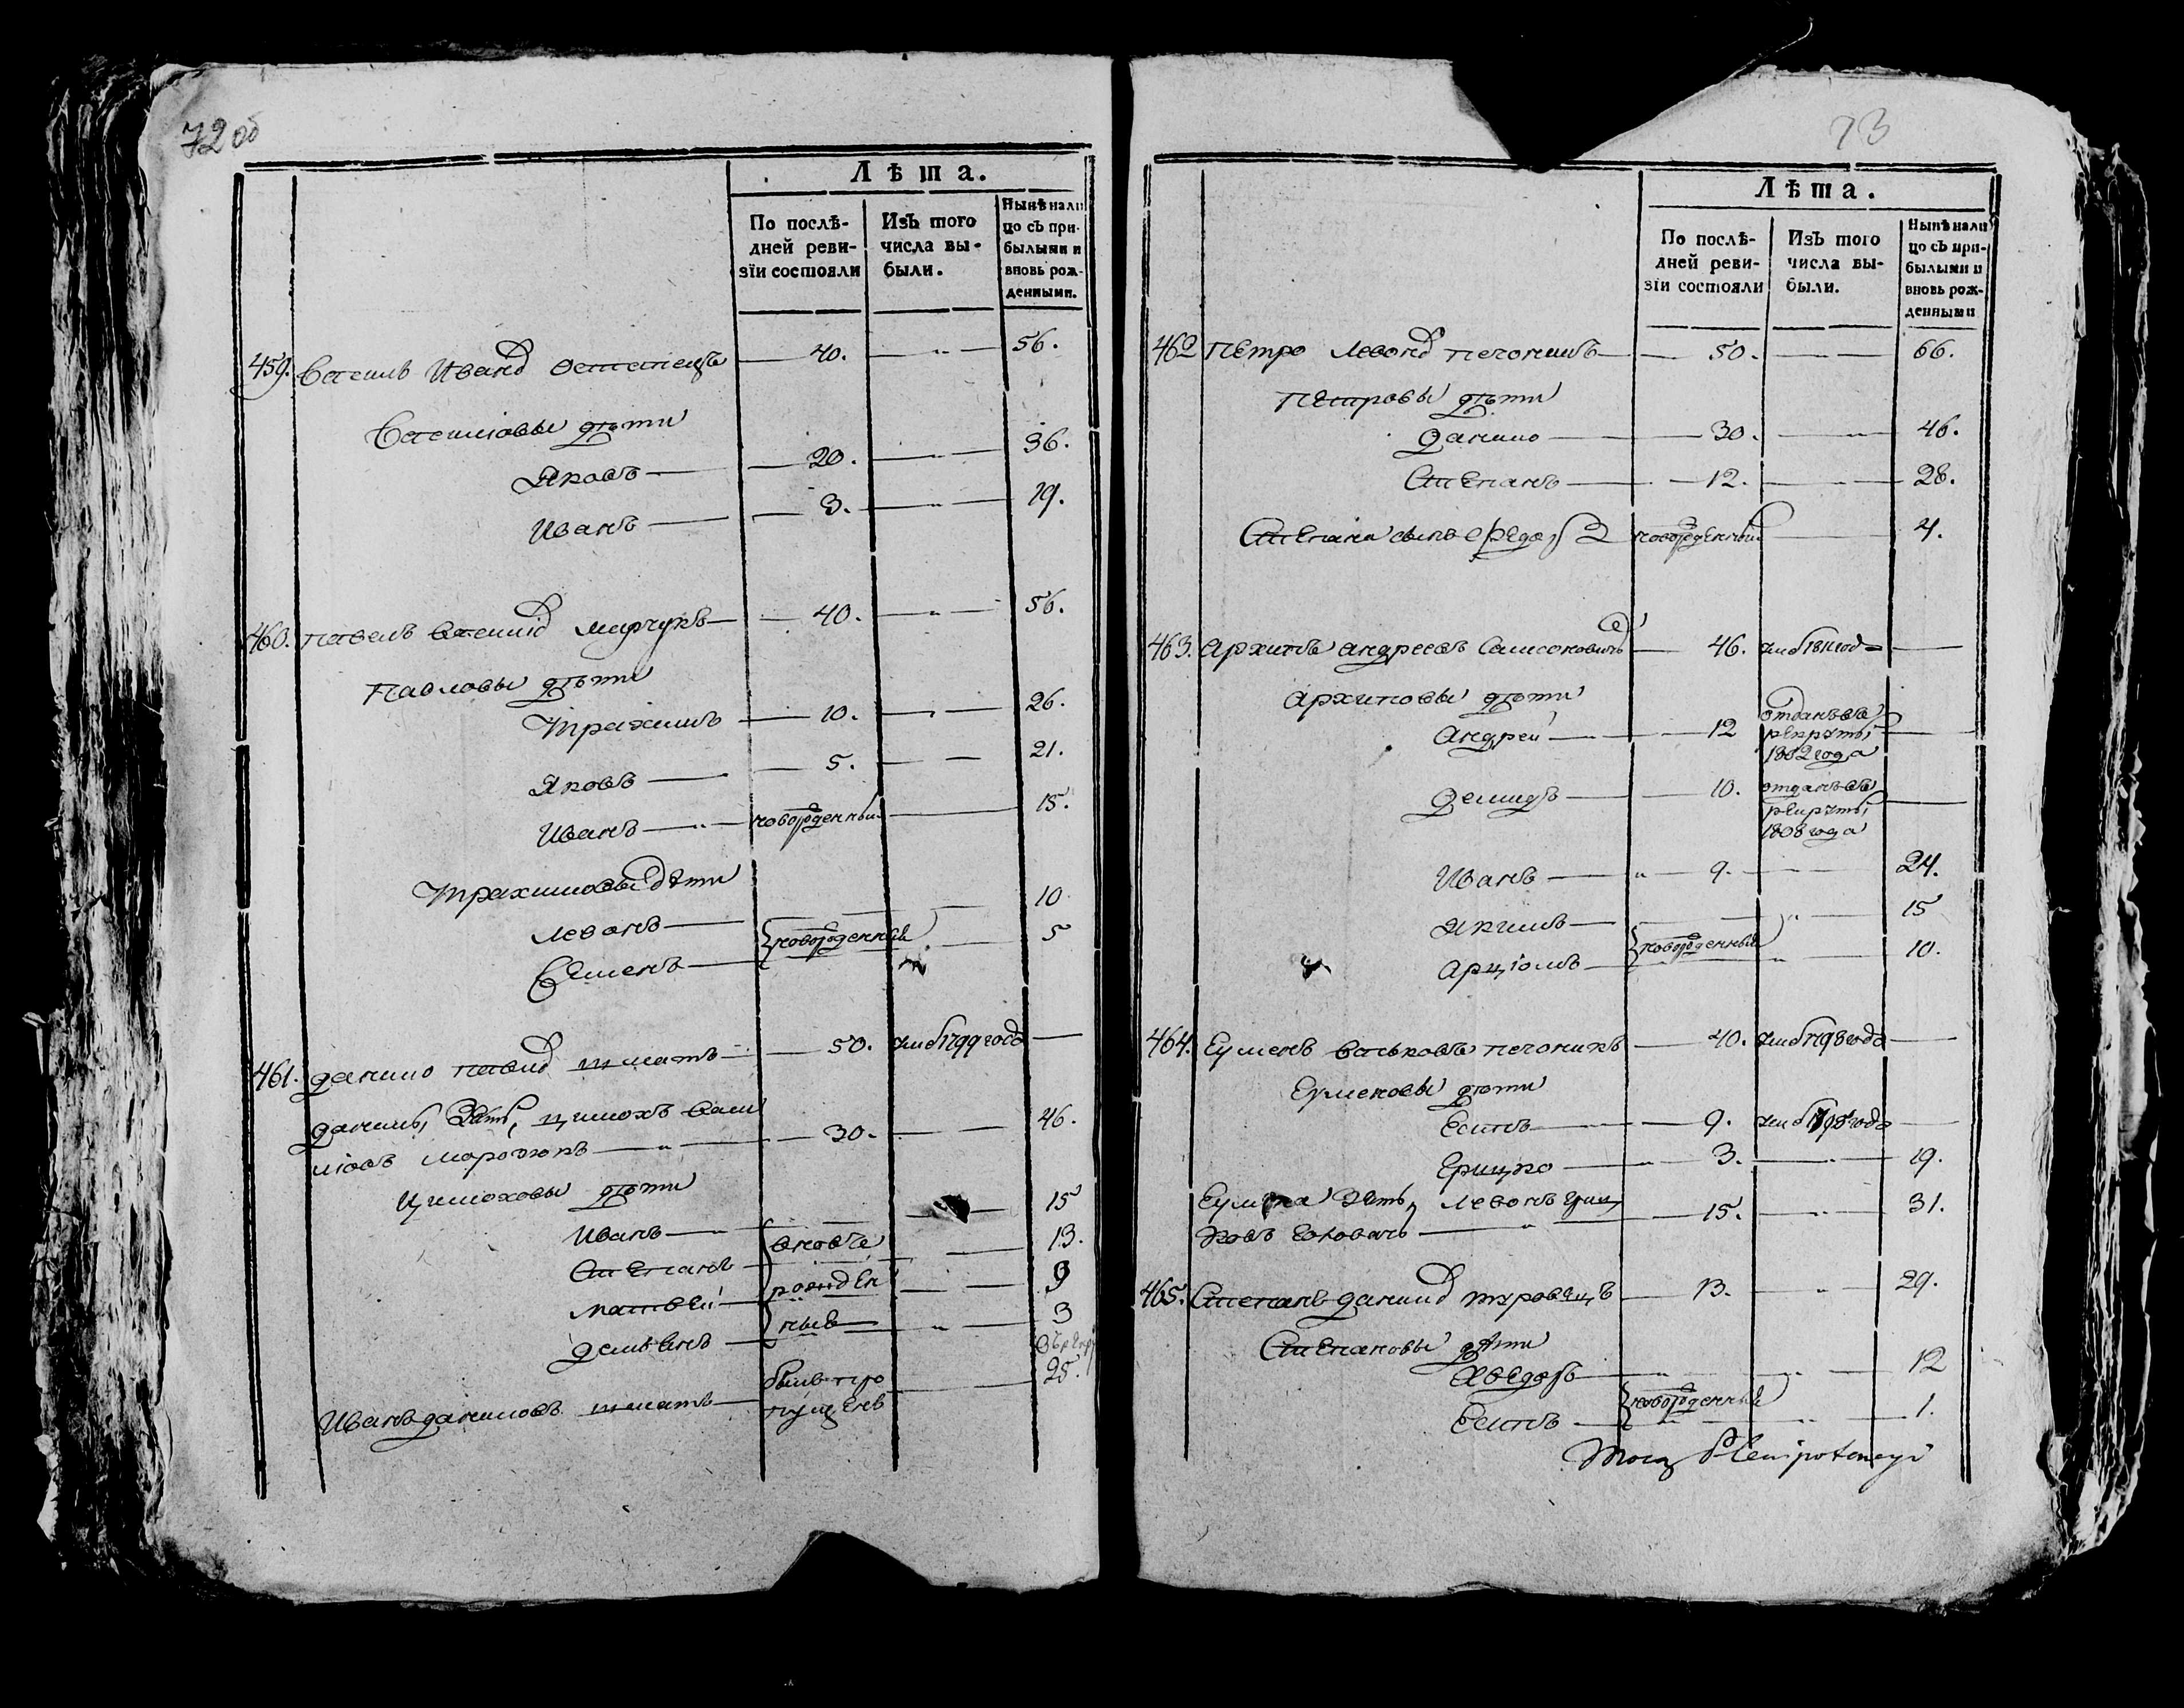 72 об
Лѣта.
По послѣдней ревизіи состояли
Изъ того числа выбыли.
Нынѣ налицо съ прибылыми и вновь рожденными.
459. Василь Иванов Остапецъ — 40. — „ — 56.
Василіовы дѣти
Яковъ — 20. — „ — 36.
Иванъ — 3. — „ — 19.
460. Павелъ Василіов Марчукъ — 40. — „ — 56.
Павловы дѣти
Трахимъ — 10. — 26.
Яковъ — 5. — 21.
Иванъ — „ — новорожденный — 15.
Трахимовы дѣти
Левонъ — 10.
Семенъ — новорожденный — 5
461. Данило Павлов — 50. умер 1799 года —
Данилы Зять, Цимохъ Васи
ліовъ — „ — 30. — 46.
Цимоховы дѣти
Иванъ — 15
Степанъ — вновь — 13.
Матвей — рожден — 9
Демьянъ — ные — „ — 3
Иванъ Даниловъ — былъ пропущенъ — 25.
73
Лѣта.
По послѣдней ревизіи состояли
Изъ того числа выбыли.
Нынѣ налицо съ прибылыми и вновь рожденными
462 Петро Левонов Печоникъ — 50. — 66.
Петровы дѣти
Данило — 30. — „ — 46.
Степанъ — 12. — „ — 28.
Степана сынъ Федоръ новорожденный — 4.
463. Архипъ Андреевъ Самсоновичъ — 46. умер 1811 года —
Архиповы дѣти
Андрей — 12 отданъ въ рекруты 1802 года —
Демидъ — 10. отданъ въ рекруты 1808 года —
Иванъ — „ 9. — 24.
Якимъ — 15
Арціомъ — новорожденный — 10.
464. Еуменъ Васьковъ Печоникъ — 40. умер 1798 года —
Еуменовы дѣти
Есипъ — 9. умер 1798 года —
Ерицко — „ 3. — „ — 19.
Еумена Зять, Левонъ Гриц
ковъ — „ — 15. — „ — 31.
465. Степанъ Данилов Туровецъ — 13. — „ — 29.
Степановы дѣти
Хведоръ — 12
Есипъ — новорожденный — 1.
Mocą Plenipotencyi